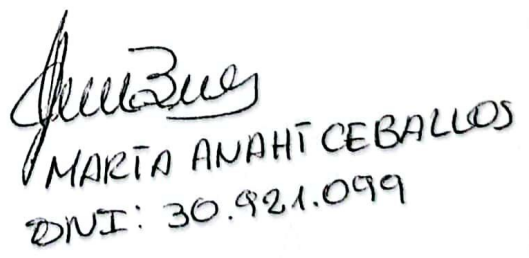 MARÍA ANAHÍ CEBALLOS
DNI: 30.921.099